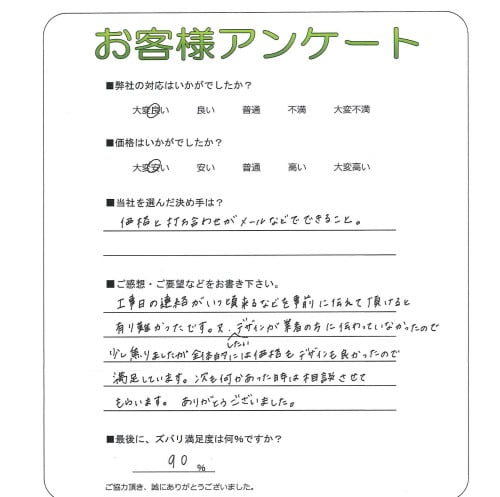 お客様アンケート
■弊社の対応はいかがでしたか?
大変良い 良い 普通 不満 大変不満
■価格はいかがでしたか?
大変安い 安い 普通 高い 大変高い
■当社を選んだ決め手は?
価格と打ち合わせがメールなどでできること。
■ご感想・ご要望などをお書き下さい。
工事日の連絡がいつ頃来るなどを事前に伝えて頂けると
有り難かったです。又、デザインが業者の方に伝わっていなかったので
少し焦りましたが全体的には価格もデザインも良かったので
満足しています。次も何かあった時は相談させて
もらいます。ありがとうございました。
■最後に、ズバリ満足度は何%ですか?
90 %
ご協力頂き、誠にありがとうございました。